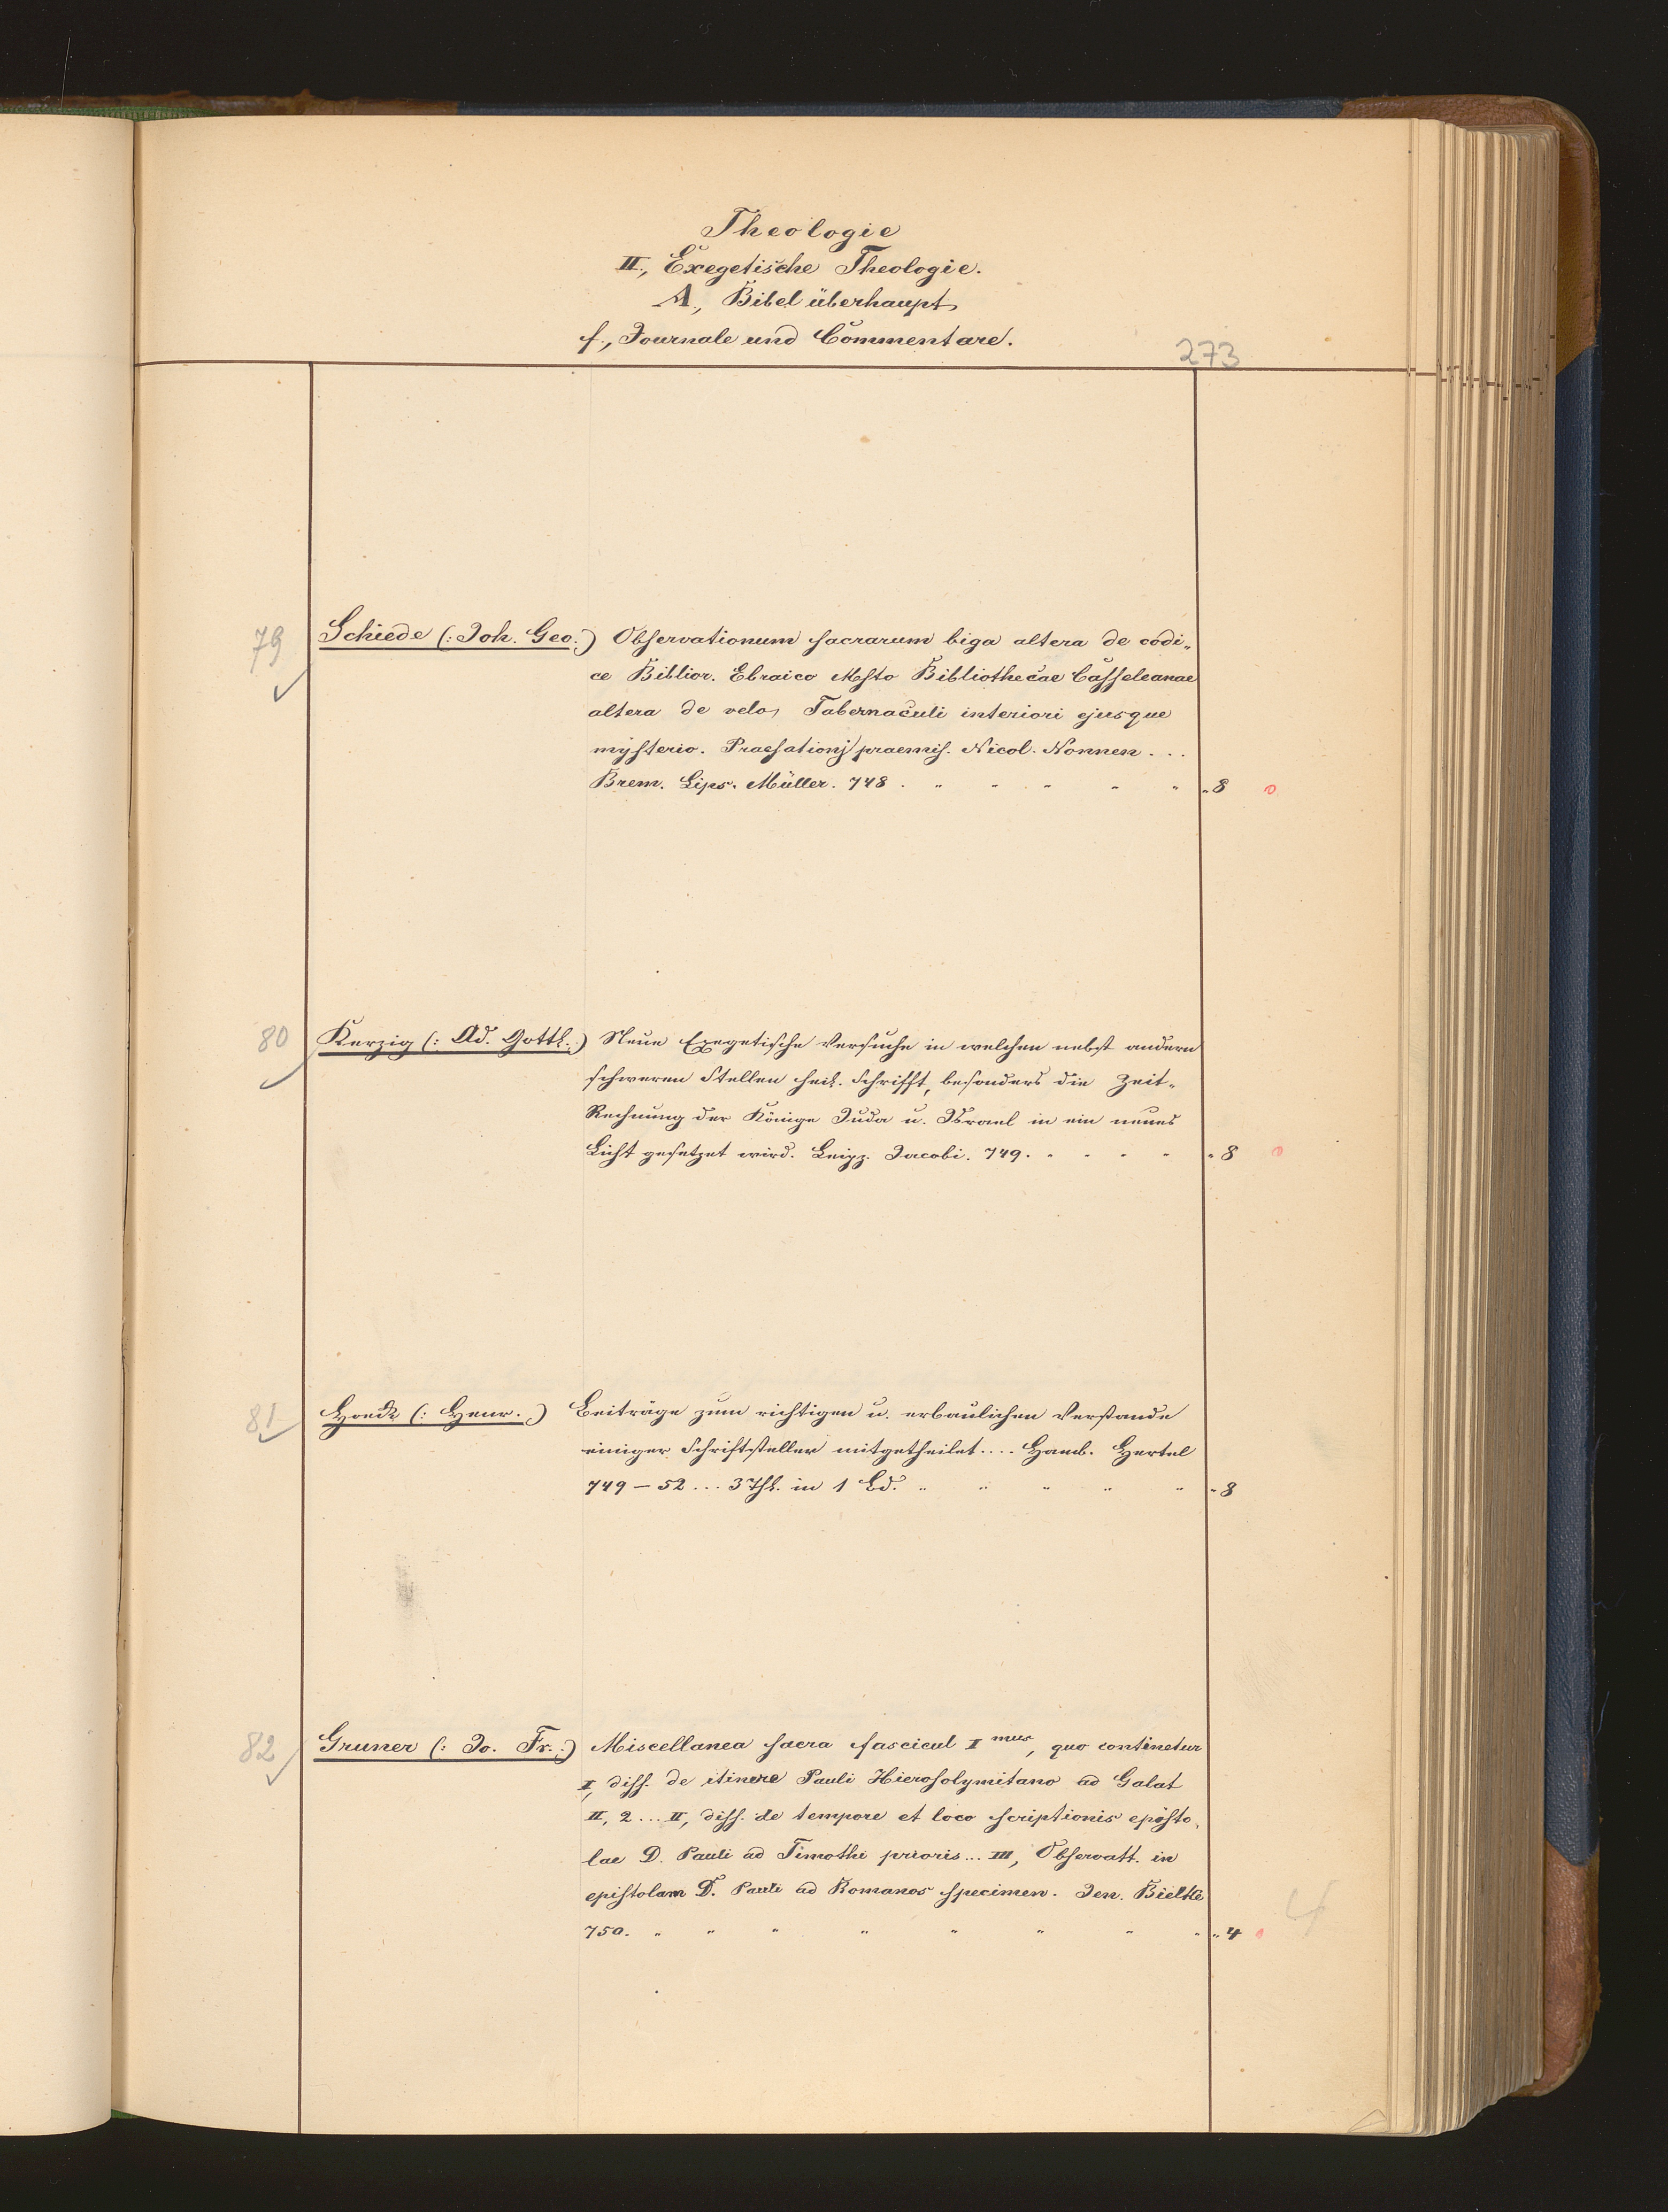 Theologie
II., Exegetische Theologie.
A., Bibel überhaupt
f., Journale und Commentare.
273
79 Schiede (: Joh. Geo. :) Observationum sacrarum biga altera de codi-
ce Biblior. Ebraico Msto Bibliothecae Casseleanae
altera de velo, Tabernaculi interiori ejusque
mysterio. Praefationj praemis. Nicol. Nonnen...
Brem. Lips. Müller. 748. " " " " " " 8
80 Kerzig (: Ad. Gottl. :) Neue Exegetische Versuche in welchen nebst andern
schweren Stellen heil. Schrifft, besonders die Zeit-
Rechnung der Könige Juda u. Israel in ein neues
Licht gesetzet wird. Leipz. Jacobi. 749. " " " " " 8
81 Hoeck (: Henr. :) Beiträge zum richtigen u. erbaulichen Verstande
einiger Schriftsteller mitgetheilet.... Hamb. Hertel
749 – 52 ... 3 Thl. in 1 Bd. " " " " " " 8
82 Gruner (: Jo. Fr. :) Miscellanea sacra fascicul I mus, quo continetur
I, diss. de itinere Pauli Hierosolymitano ad Galat
II, 2 ... II, diss. de tempore et loco scriptionis episto-
lae D. Pauli ad Timothi prioris ... III, Observatt. in
epistolam D. Pauli ad Romanos specimen. Jen. Bielke
750. " " " " " " " " " 4
4